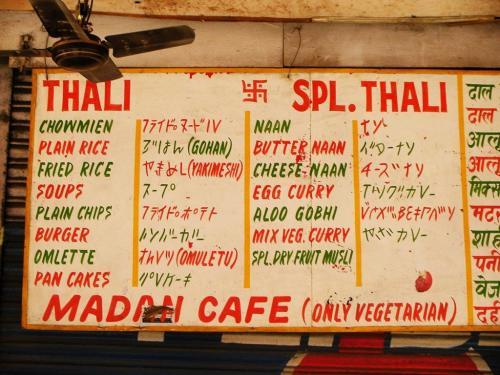 THALI 卐 SPL. THALI
CHOWMIEN フライドヌードIV NAAN ナン दाल
PLAIN RICE ごはん (GOHAN) BUTTER NAAN バターナン दाल
FRIED RICE やきめし (YAKIMESHI) CHEESE NAAN チーズナン आलू
SOUPS スープ EGG CURRY カレー आलू
PLAIN CHIPS フライドポテト ALOO GOBHI
BURGER ハンバーガー MIX VEG. CURRY ヤサイカレー
OMLETTE オムレツ (OMULETU) SPL. DRY FRUIT MUSLI
PAN CAKES パンケーキ
MADAN CAFE (ONLY VEGETARIAN) दही